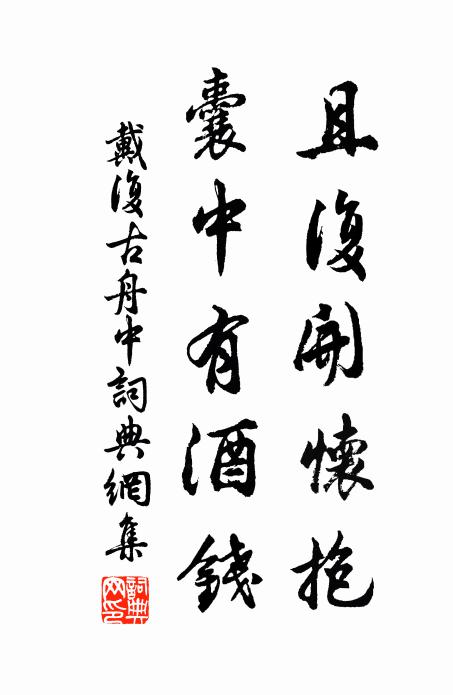 且復開懷抱
囊中有酒錢
戴復古舟中詞典網集
詞典網印